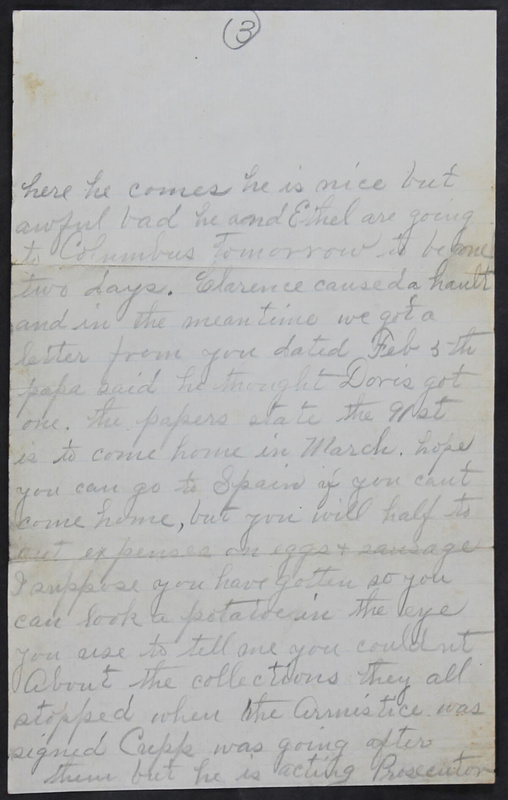 3
here he comes he is nice but
awful bad he and Ethel are going
to Columbus Tomorrow to be gone
two days. Clarence caused a hault
and in the meantime we got a
letter from you dated Feb 5th
papa said he thought Doris got
one. the papers state the 91st
is to come home in March. hope
you can go to Spain if you cant
come home, but you will half to
cut expenses on eggs & sausage
I suppose you have gotten so you
can look a potatoe in the eye
you use to tell me you couldnt
About the collections they all
stopped when the Armistice was
signed Cupp was going after
them but he is acting Prosecutor